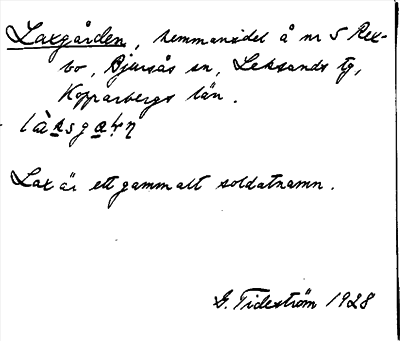 Laxgården, hemmansdel å nr 5 Rex-
bo, Bjursås sn, Leksands tg,
Kopparbergs län.
Lax är ett gammalt soldatnamn.
G. Tideström 1928